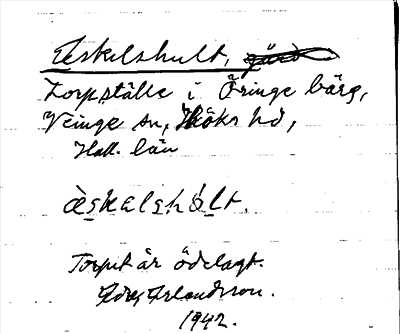 Eskilshult, gård
Torpställe i Öringe bärg,
Veinge sn, Höks hd,
Hall. län
èskəlshúlt.
Torpet är ödelagt.
Erlandsson.
1942.